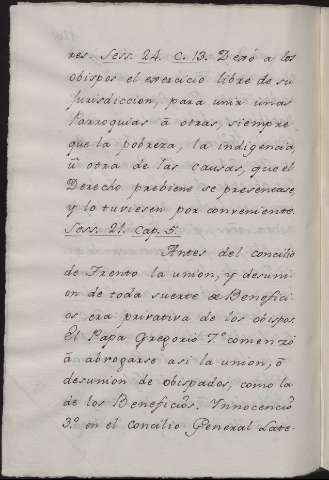 res. Sess. 24. C. 13. Dexó a los
obispos el exercicio libre de su
Jurisdiccion, para unir unas
Parroquias á otras, siempre
que la pobreza, la indigencia,
ù otra de las causas, que el
Derecho prebiene se presencase,
y lo tuviesen por conveniente.
Sess. 21. Cap. 5.
Antes del concilio
de Trento la union, y desuni
on de toda suerte de Benefici
os era privativa de los obispos.
El Papa Gregorio 7.º comenzó
á abrogarse asi la union, ó
desunion de obispados, como la
de los Beneficios. Innocencio
3.º en el concilio General Late-